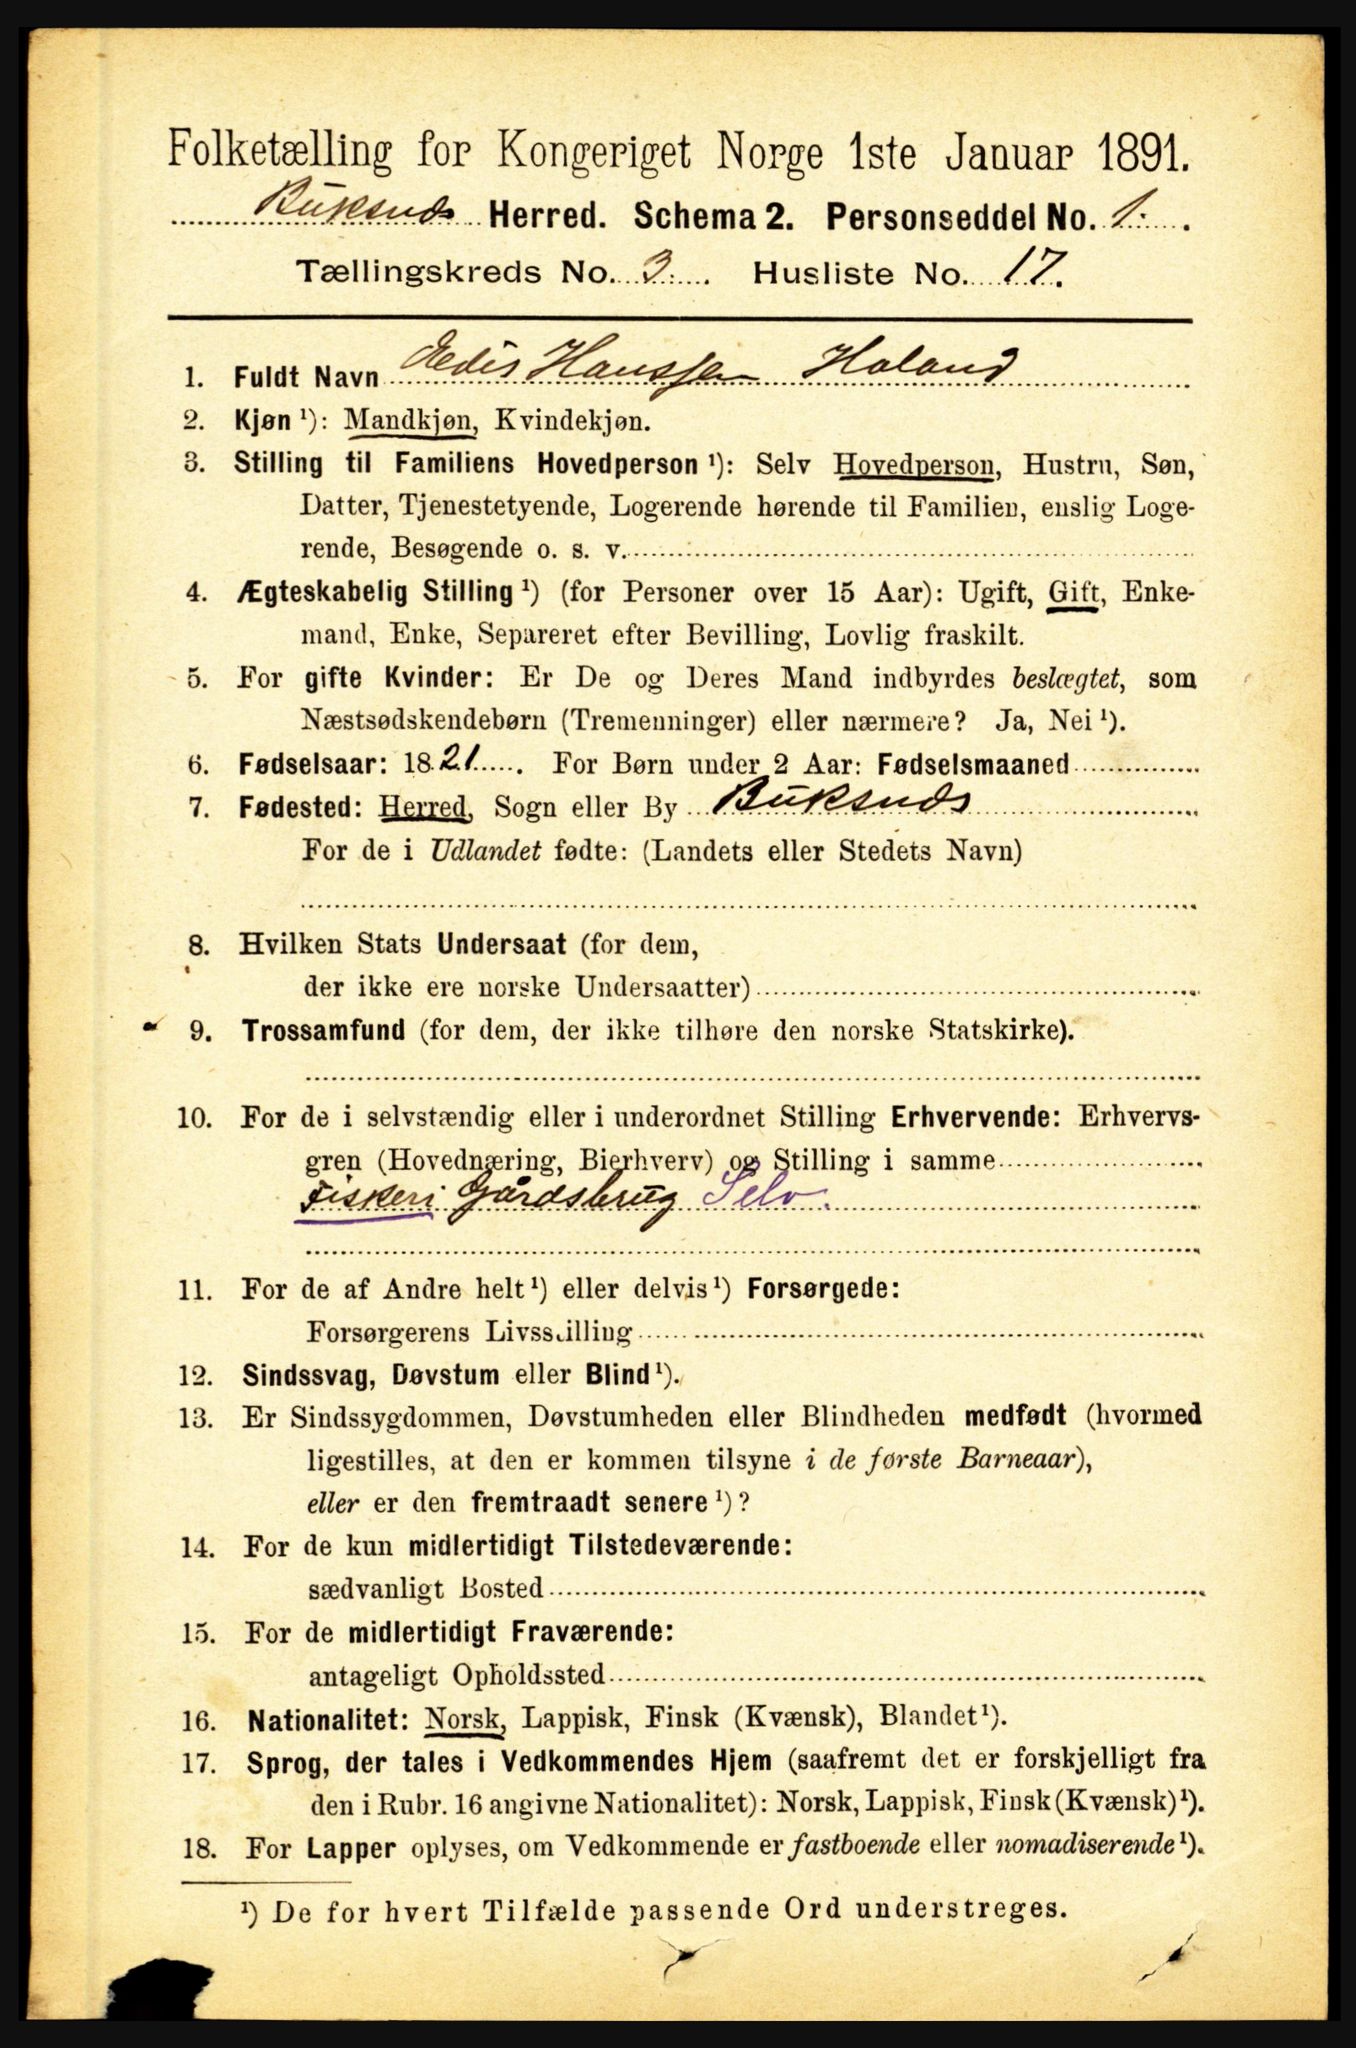 Folketælling for Kongeriget Norge 1ste Januar 1891.
Buksnds Herred. Schema 2. Personseddel No. 1.
Tællingskreds No. 3. Husliste No. 17.
1. Fuldt Navn Hanssen Haland
2. Kjøn ¹): Mandkjøn, Kvindekjøn.
3. Stilling til Familiens Hovedperson ¹): Selv Hovedperson, Hustru, Søn,
Datter, Tjenestetyende, Logerende hørende til Familien, enslig Loge-
rende, Besøgende o. s. v.
4. Ægteskabelig Stilling ¹) (for Personer over 15 Aar): Ugift, Gift, Enke-
mand, Enke, Separeret efter Bevilling, Lovlig fraskilt.
5. For gifte Kvinder: Er De og Deres Mand indbyrdes beslægtet, som
Næstsødskendebørn (Tremenninger) eller nærmere? Ja, Nei ¹).
6. Fødselsaar: 1821. For Børn under 2 Aar: Fødselsmaaned
7. Fødested: Herred, Sogn eller By Buksnds
For de i Udlandet fødte: (Landets eller Stedets Navn)
8. Hvilken Stats Undersaat (for dem,
der ikke ere norske Undersaatter)
9. Trossamfund (for dem, der ikke tilhøre den norske Statskirke).
10. For de i selvstændig eller i underordnet Stilling Erhvervende: Erhvervs-
gren (Hovednæring, Bierhverv) og Stilling i samme
Fiskeri Gårdsbrug Selv.
11. For de af Andre helt ¹) eller delvis ¹) Forsørgede:
Forsørgerens Livsstilling
12. Sindssvag, Døvstum eller Blind ¹).
13. Er Sindssygdommen, Døvstumheden eller Blindheden medfødt (hvormed
ligestilles, at den er kommen tilsyne i de første Barneaar),
eller er den fremtraadt senere ¹)?
14. For de kun midlertidigt Tilstedeværende:
sædvanligt Bosted
15. For de midlertidigt Fraværende:
antageligt Opholdssted
16. Nationalitet: Norsk, Lappisk, Finsk (Kvænsk), Blandet ¹).
17. Sprog, der tales i Vedkommendes Hjem (saafremt det er forskjelligt fra
den i Rubr. 16 angivne Nationalitet): Norsk, Lappisk, Finsk (Kvænsk) ¹).
18. For Lapper oplyses, om Vedkommende er fastboende eller nomadiserende ¹).
¹) De for hvert Tilfælde passende Ord understreges.